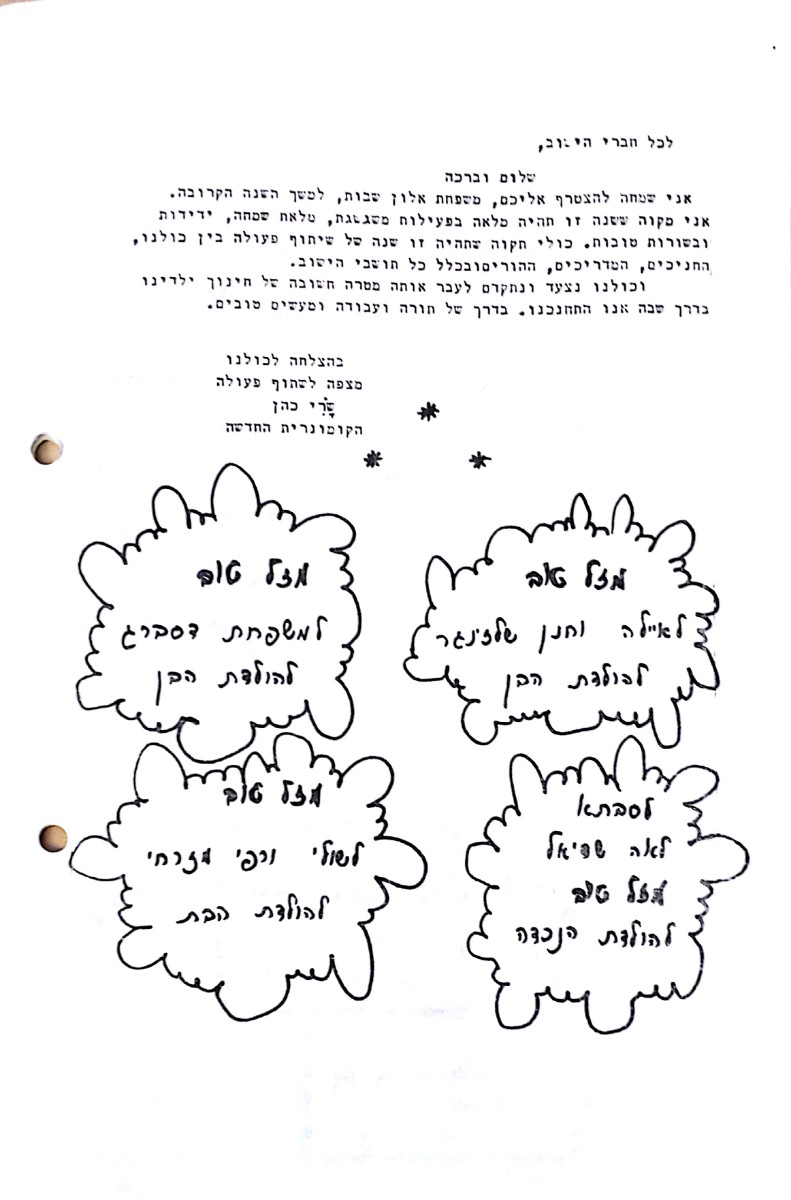 לכל חברי הישוב,
שלום וברכה
אני שמחה להצטרף אליכם, משפחת אלון שבות, למשך השנה הקרובה.
אני מקוה ששנה זו תהיה מלאה בפעילות משגשגת, מלאת שמחה, ידידות
ובשורות טובות. כולי תקוה שתהיה זו שנה של שיתוף פעולה בין כולנו,
החניכים, המדריכים, ההוריםובכלל כל תושבי הישוב.
וכולנו נצעד ונתקדם לעבר אותה מטרה חשובה של חינוך ילדינו
בדרך שבה אנו התחנכנו. בדרך של תורה ועבודה ומעשים טובים.
בהצלחה לכולנו
מצפה לשתוף פעולה
שָׂרִי כהן
הקומונרית החדשה
מזל טוב
לאיילה וחנן שלזינגר
להולדת הבן
מזל טוב
למשפחת דסברג
להולדת הבן
לסבתא
לאה
מזל טוב
להולדת הנכדה
מזל טוב
לשולי ורפי מזרחי
להולדת הבת